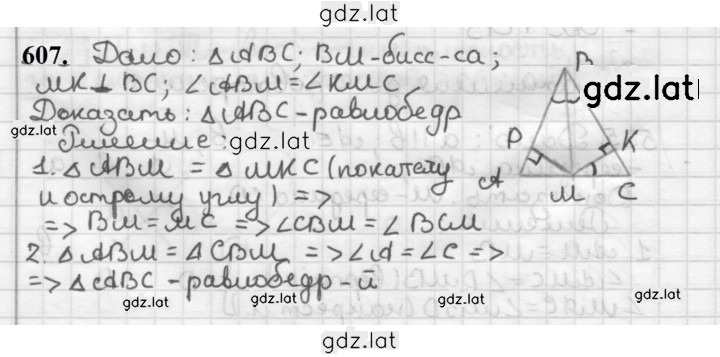 gdz.lat
607. Дано: △ABC; BM-бисс-са;
MK⊥BC; ∠ABM=∠KMC
Доказать: △ABC-равнобедр
gdz.lat
Решение: gdz.lat
1. △ABM = △MKC (по катету
и острому углу) =>
=> BM=MC => ∠CBM=∠BCM
2. △ABM=△CBM => ∠A=∠C =>
=> △ABC-равнобедр-й
B
gdz.lat
P K
A M C
gdz.lat
gdz.lat gdz.lat gdz.lat
gdz.lat